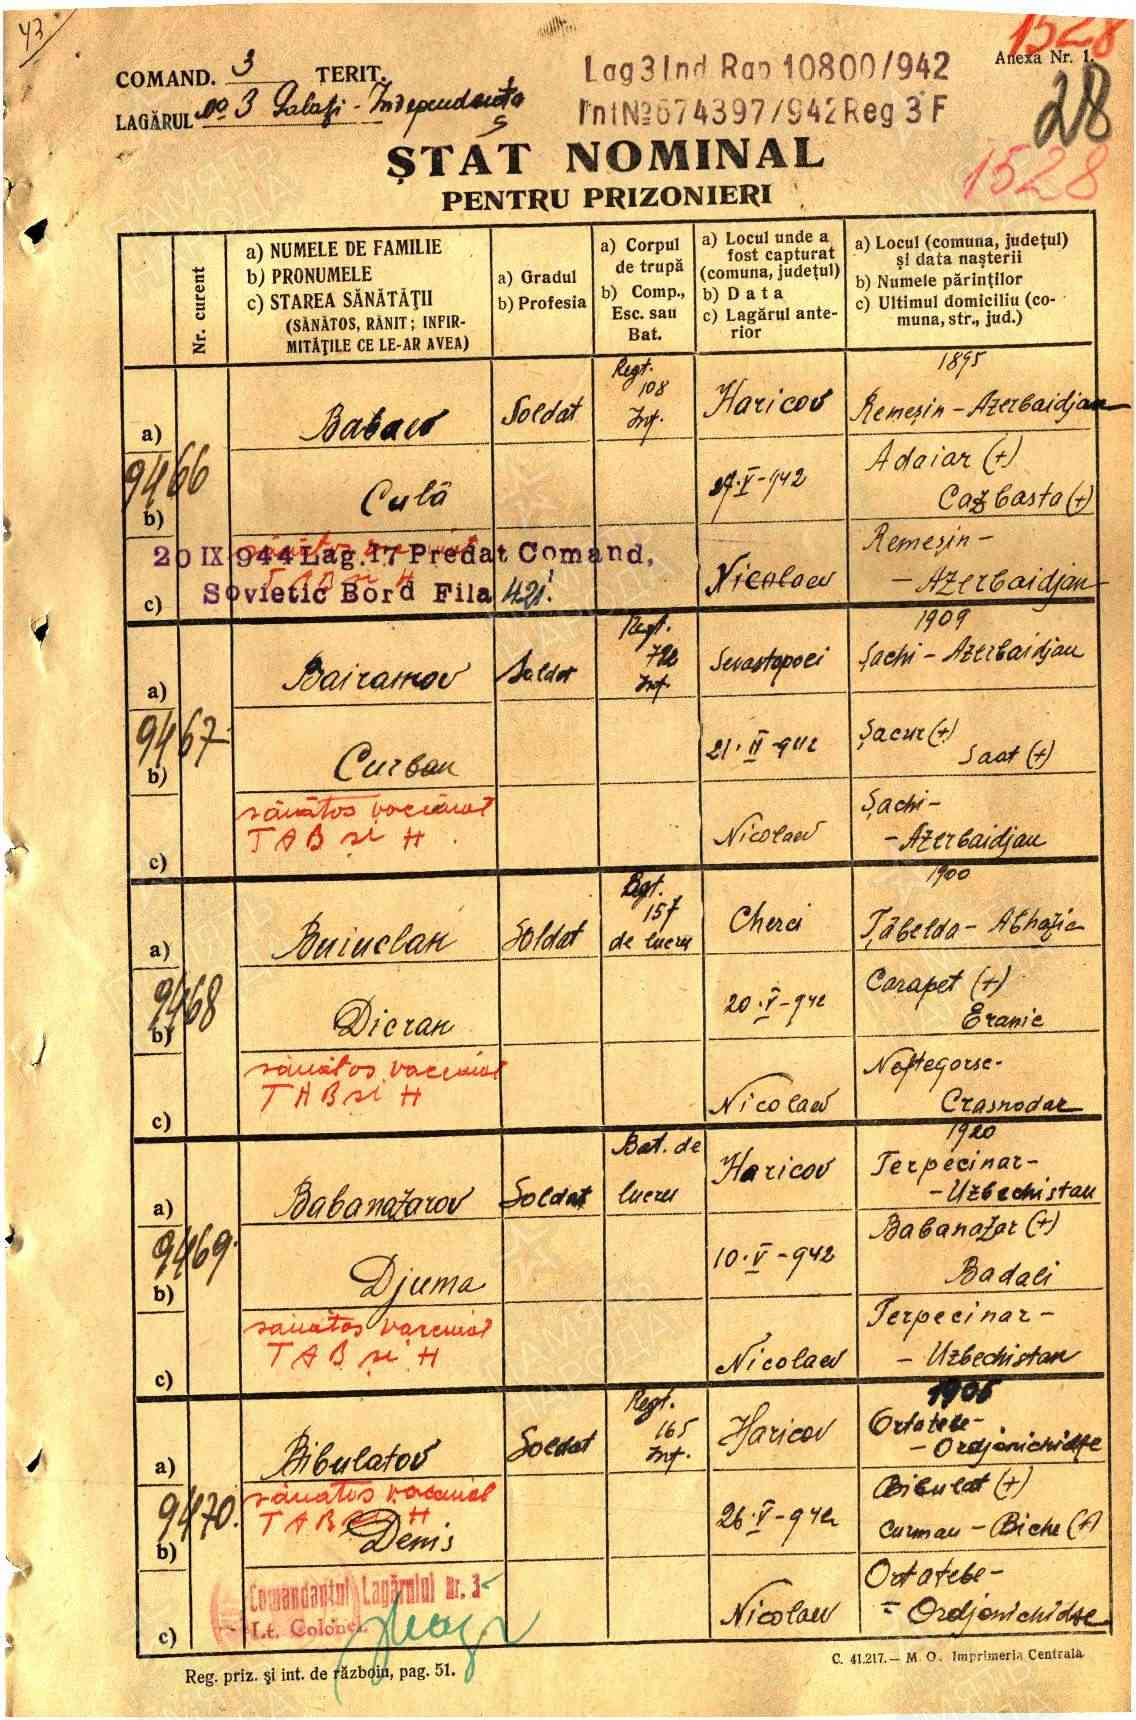 43
1528
COMAND. 3 TERIT.
Lag 3 Ind Rap 10800/942
Anexa Nr. 1.
LAGĂRUL No 3 Galaţi - Independenţa
Int № 674397/942 Reg 3 F
28
1528
ŞTAT NOMINAL
PENTRU PRIZONIERI
Nr. curent
a) NUMELE DE FAMILIE
b) PRONUMELE
c) STAREA SĂNĂTĂŢII
(SĂNĂTOS, RĂNIT; INFIR-
MITĂŢILE CE LE-AR AVEA)
a) Gradul
b) Profesia
a) Corpul
de trupă
b) Comp.,
Esc. sau
Bat.
a) Locul unde a
fost capturat
(comuna, judeţul)
b) Data
c) Lagărul ante-
rior
a) Locul (comuna, judeţul)
şi data naşterii
b) Numele părinţilor
c) Ultimul domiciliu (co-
muna, str., jud.)
9466
a)
b)
c)
Babaev
Culă
20 IX 944 Lag. 17 Predat Comand,
Sovietic Bord Fila 421.
Soldat
Regt.
108
Inf.
Haricov
27·V-942
Nicolaev
1895
Remeşin - Azerbaidjan
Adaiar (+)
Cazbasta (+)
Remeşin -
- Azerbaidjan
9467
a)
b)
c)
Bairamov
Curban
sănătos vaccinat
TAB si H
Soldat
Regt.
792
Inf.
Sevastopoci
21·II-942
Nicolaev
1909
Şachi - Azerbaidjan
Şacur (+)
Saat (+)
Şachi -
- Azerbaidjan
9468
a)
b)
c)
Buiuclan
Dicran
sănătos vaccinat
TAB si H
Soldat
Regt.
157
de lucru
Cherci
20·V-942
Nicolaev
1900
Ţăbelda - Abhazia
Carapet (+)
Eranic
Neftegorsc -
Crasnodar
9469
a)
b)
c)
Babanazarov
Djuma
sănătos vaccinat
TAB si H
Soldat
Bat. de
lucru
Haricov
10·V-942
Nicolaev
1920
Terpecinar -
- Uzbechistan
Babanazar (+)
Badali
Terpecinar -
- Uzbechistan
9470.
a)
b)
c)
Bibulatov
sănătos vaccinat
TAB si H
Denis
Comandantul Lagărului nr. 3
Lt. Colonel
Soldat
Regt.
165
Inf.
Haricov
26·V-942
Nicolaev
1905
Ortatebe -
- Ordjonichidse
Bibulat (+)
Curman - Biche (+)
Ortatebe -
- Ordjonichidse
Reg. priz. şi int. de războiu, pag. 51.
C. 41.217. — M. O. Imprimeria Centrală